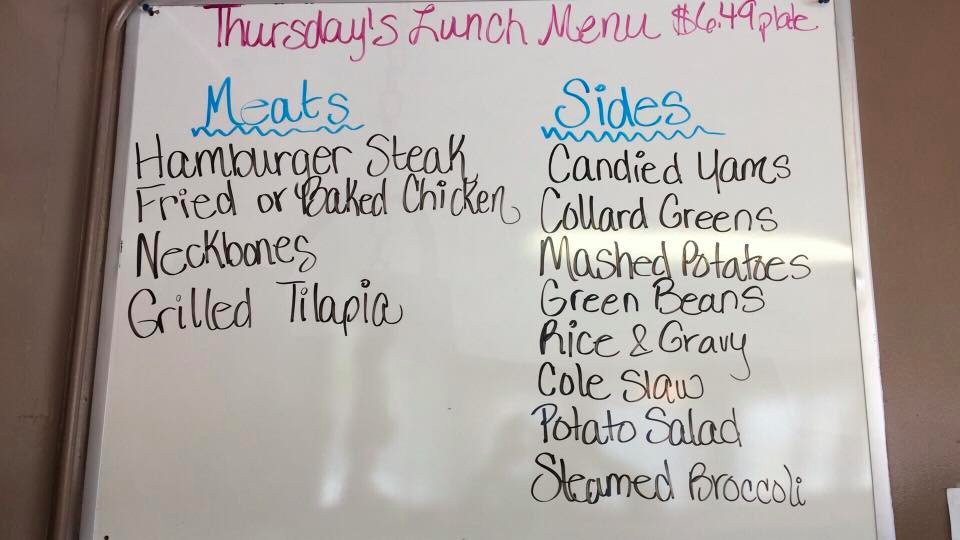 Thursday's Lunch Menu $6.49 plate
Meats
Hamburger Steak
Fried or Baked Chicken
Neckbones
Grilled Tilapia
Sides
Candied Yams
Collard Greens
Mashed Potatoes
Green Beans
Rice & Gravy
Cole Slaw
Potato Salad
Steamed Broccoli